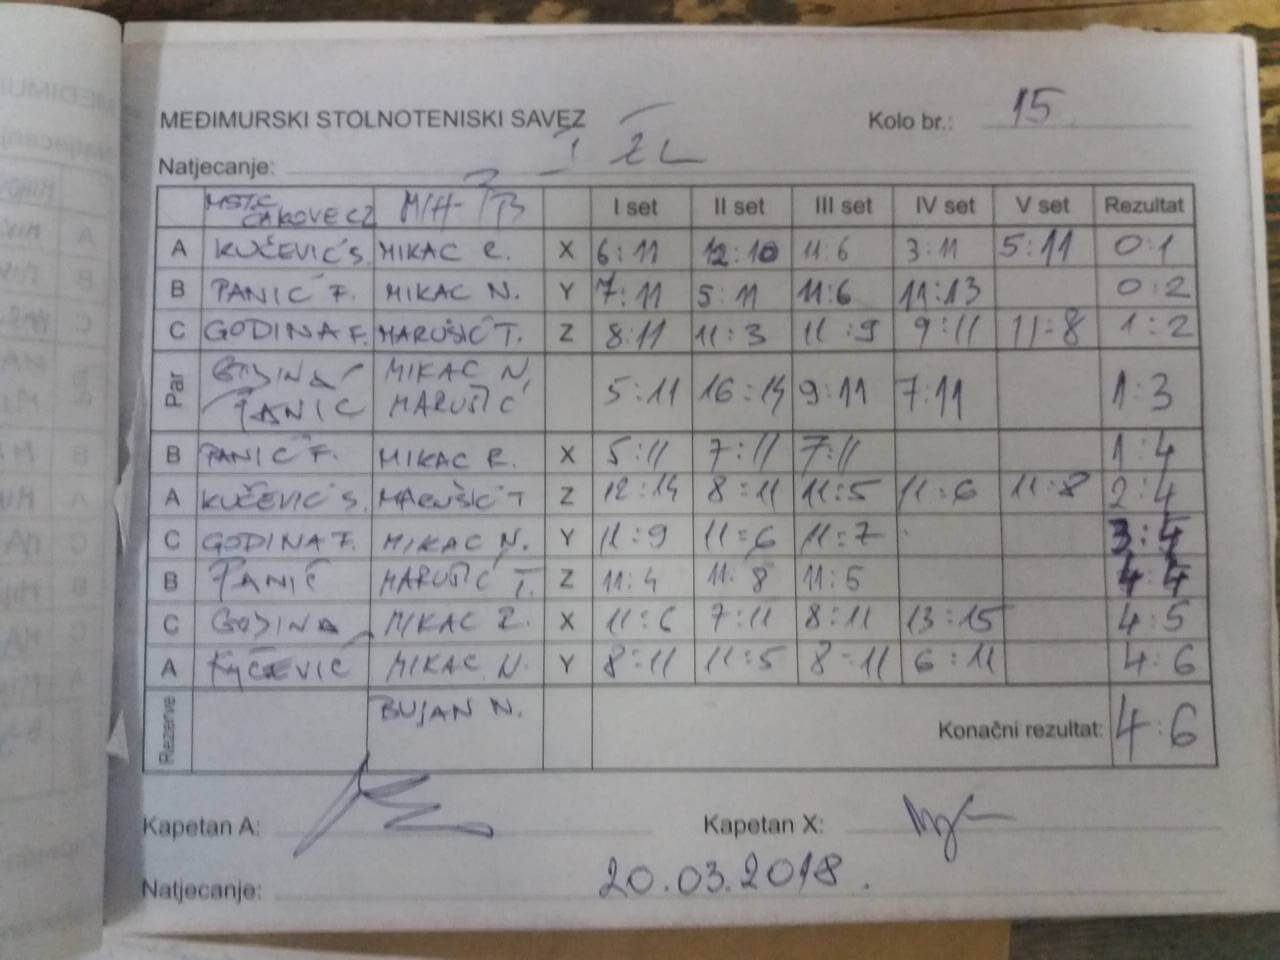 MEĐIMURSKI STOLNOTENISKI SAVEZ Kolo br.: 15
Natjecanje: I ŽL
MSTC ČAKOVEC I set II set III set IV set V set Rezultat
A KUČEVIĆ S. MIKAC R. X 6:11 12:10 11:6 3:11 5:11 0:1
B PANIĆ F. MIKAC N. Y 7:11 5:11 11:6 11:13 0:2
C GODINA F. MARUŠIĆ T. Z 8:11 11:3 11:9 9:11 11:8 1:2
Par GODINA MIKAC N,
PANIĆ MARUŠIĆ 5:11 16:14 9:11 7:11 1:3
B PANIĆ F. MIKAC R. X 5:11 7:11 7:11 1:4
A KUČEVIĆ S. MARUŠIĆ T Z 12:14 8:11 11:5 11:6 11:8 2:4
C GODINA F. MIKAC N. Y 11:9 11:6 11:7 3:4
B PANIĆ MARUŠIĆ T. Z 11:4 11:8 11:5 4:4
C GODINA MIKAC R. X 11:6 7:11 8:11 13:15 4:5
A KUČEVIĆ MIKAC N. Y 8:11 11:5 8:11 6:11 4:6
Rezerve BUJAN N. Konačni rezultat: 4:6
Kapetan A: Kapetan X:
Natjecanje: 20.03.2018.